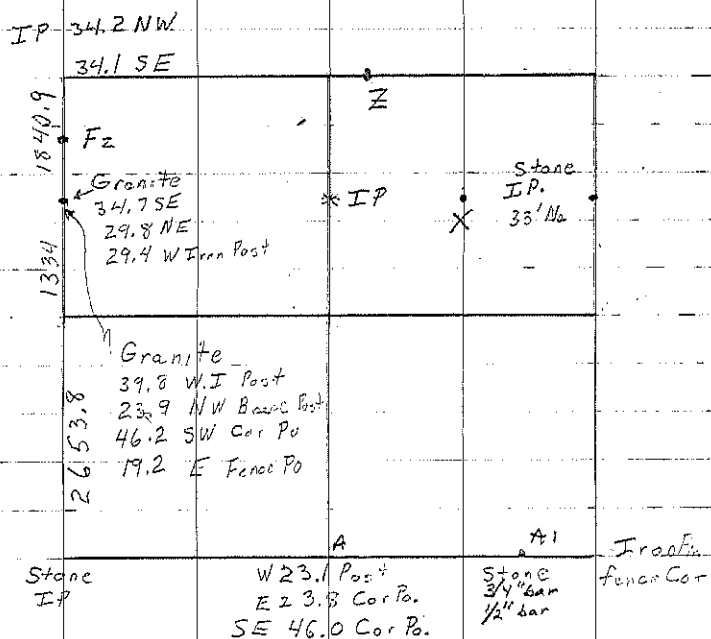 IP 34.2 NW
34.1 SE
1840.9
Z
Fz
Granite
34.7 SE
29.8 NE
29.4 W Iron Post
IP
X
Stone
IP.
33' No
1334
Granite
39.8 W.I Post
23.9 NW Post
46.2 SW Cor Po
19.2 E Fence Po
2653.8
A
A1
Stone
IP
W 23.1 Post
E 23.8 Cor Po.
SE 46.0 Cor Po.
Stone
3/4" bar
1/2" bar
fence Cor